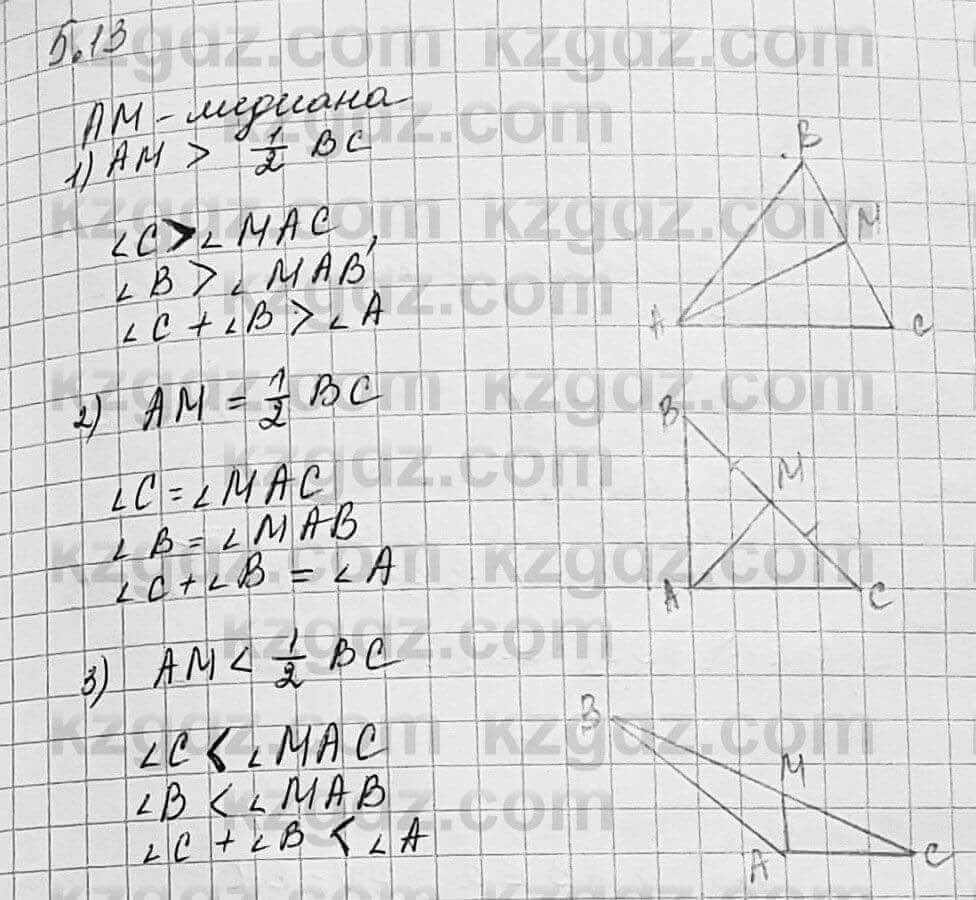 5.13
AM - медиана
1) AM > 1/2 BC
∠C > ∠MAC,
∠B > ∠MAB
∠C + ∠B > ∠A
B
M
A
C
2) AM = 1/2 BC
∠C = ∠MAC
∠B = ∠MAB
∠C + ∠B = ∠A
B
M
A
C
3) AM < 1/2 BC
∠C < ∠MAC
∠B < ∠MAB
∠C + ∠B < ∠A
B
M
A
C
kzgdz.com kzgdz.com
kzgdz.com
kzgdz.com kzgdz.com
kzgdz.com
kzgdz.com kzgdz.com
kzgdz.com
kzgdz.com kzgdz.com
kzgdz.com
kzgdz.com kzgdz.com
kzgdz.com